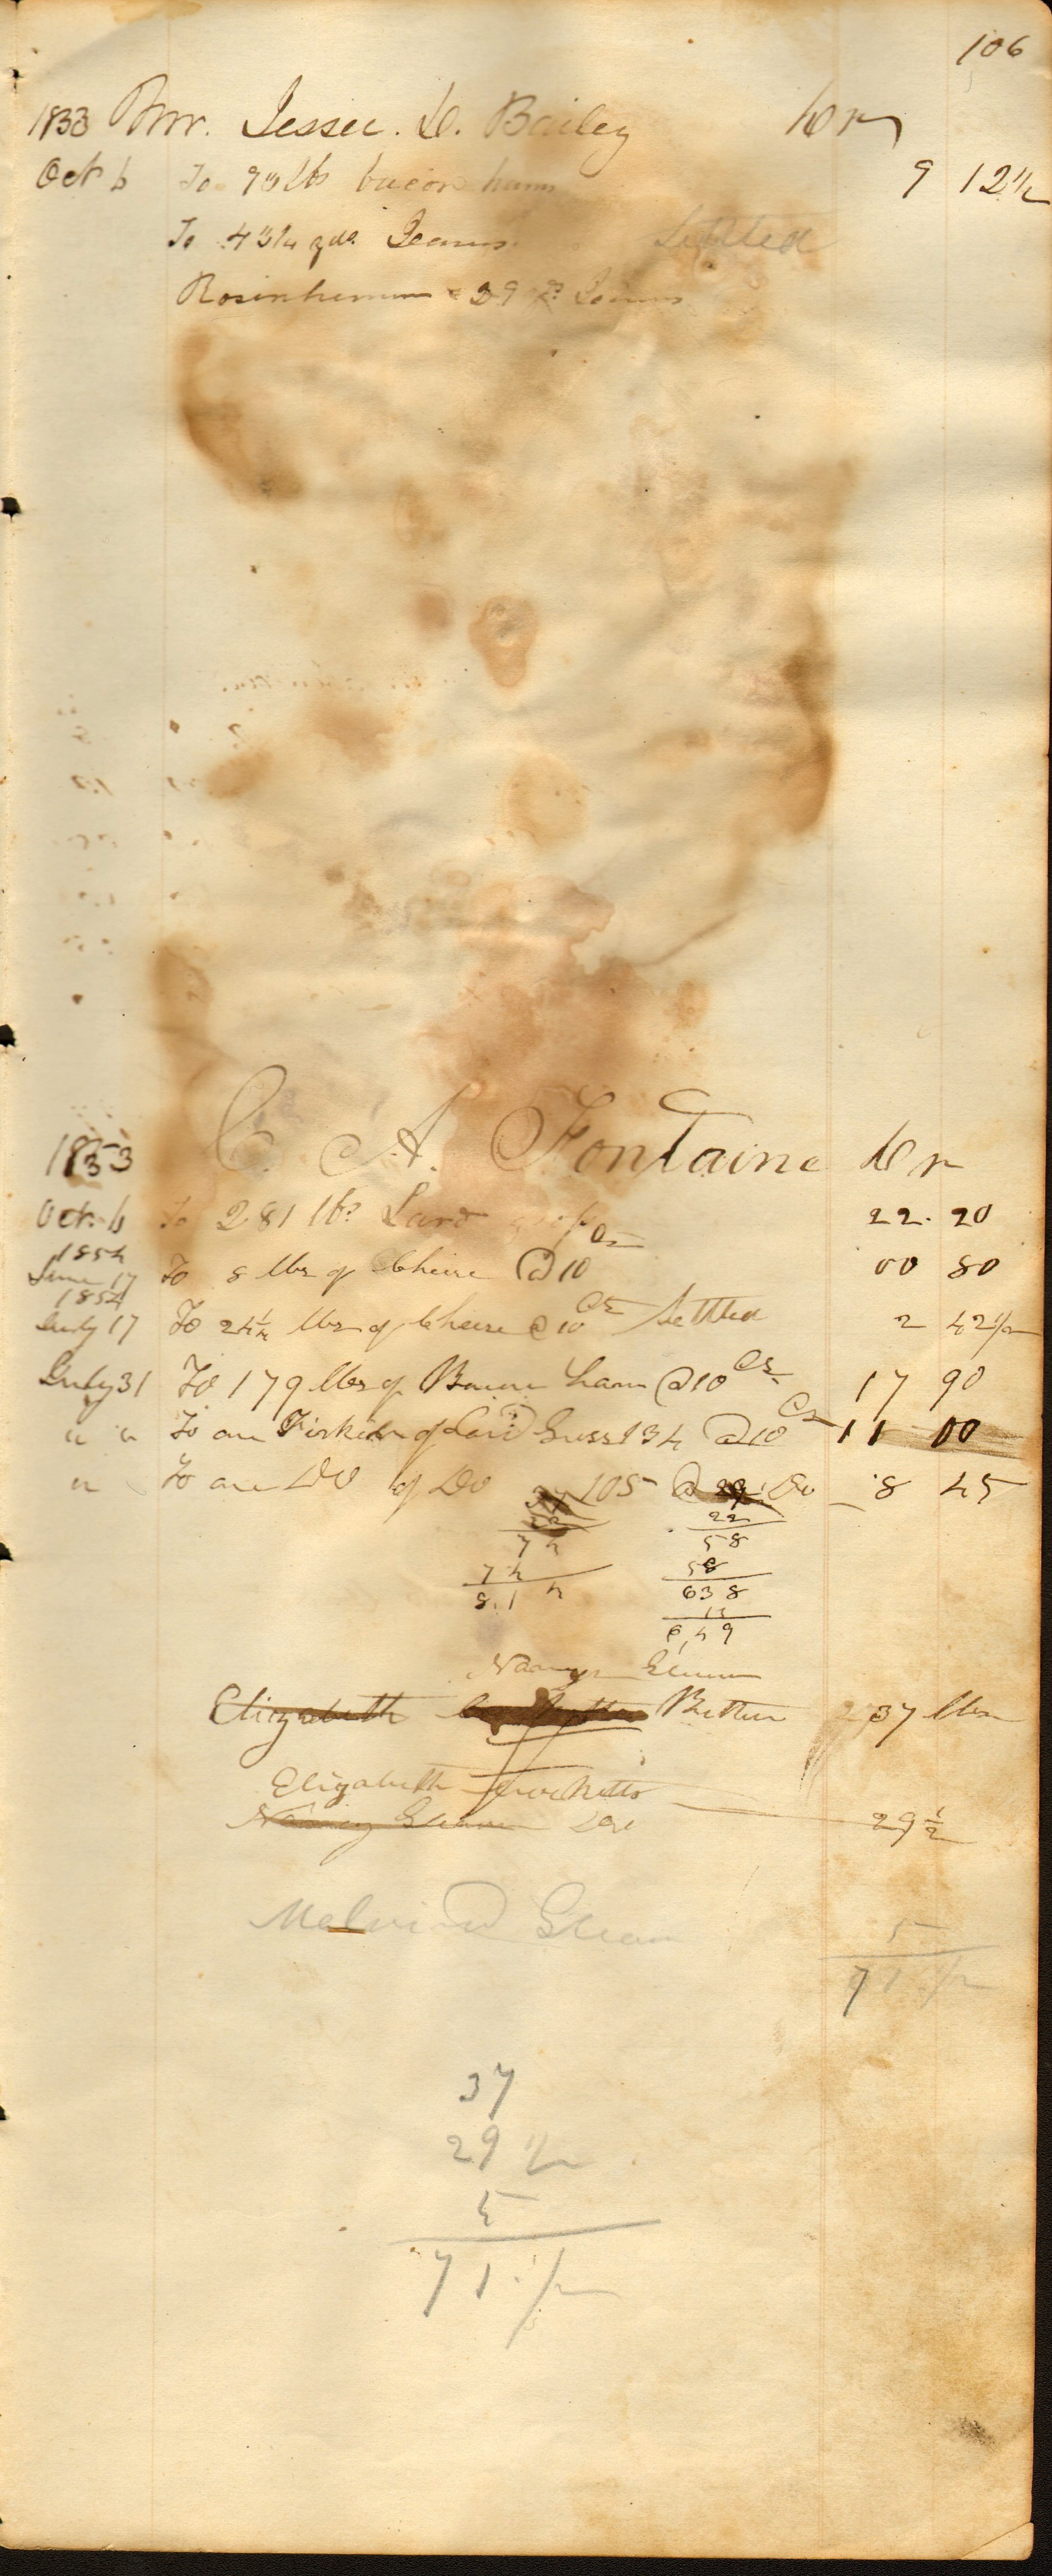 106
1833 Mr. Jessee. D. Bailey Dr
Oct 6 To 90 lbs bacon hams 9 12½
To 43¼ yds Jeans Settled
29 Jeans
1853 C. A. Fontaine Dr
Oct. 6 To 281 lbs Lard 22. 20
1854
June 17 To 8 lbs of Cheese @ 10 Cts 00 80
1854
July 17 To 24¼ lbs of Cheese @ 10 Cts Settled 2 42½
July 31 To 179 lbs of Bacon ham @ 10 Cts 17 90
" " To one Firkin of Lard Gross 134 @ 10 Cts 11 00
" To one Do of Do 105 @ Do 8 45
22
74 58
74 58
8.14 638
11
6,49
Nancy Gleaves
Elizabeth Butter 37 lbs
Elizabeth Crocketts
Nancy Gleaves Do 29½
Malvina Gleaves 5
71½
37
29½
5
71½